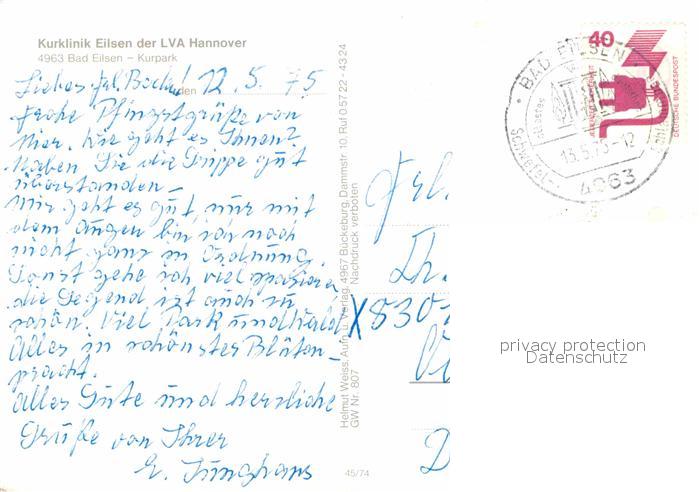 Kurklinik Eilsen der LVA Hannover
4963 Bad Eilsen – Kurpark
Liebes Frl. 12. 5. 75
frohe Pfingstgrüße von
hier. Wie geht es Ihnen?
Haben Sie die Grippe gut
überstanden –
Mir geht es gut, nur mit
dem Augen bin ich noch
nicht ganz in Ordnung.
Sonst gehe ich viel spazieren
die Gegend ist auch zu
schön. Viel Park und Wald
Alles in schönster Blüten-
pracht.
Alles Gute und herzliche
Grüße von Ihrer
Junghans
Helmut Weiss, Aufn. u. Verlag, 4967 Bückeburg, Dammstr. 10, Ruf 0 57 22 - 43 24
GW Nr. 807 Nachdruck verboten
45/74
Frl.
X 830
D
40
DEUTSCHE BUNDESPOST
JEDERZEIT SICHERHEIT
BAD EILSEN
13.5.75-12
4963
privacy protection
Datenschutz